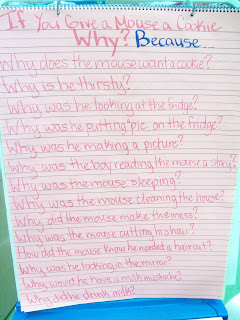 If You Give a Mouse a Cookie
Why? Because...
Why does the mouse want a cookie?
Why is he thirsty?
Why was he looking at the fridge?
Why was he putting pic on the fridge?
Why was he making a picture?
Why was the boy reading the mouse a story?
Why was the mouse sleeping?
Why was the mouse cleaning the house?
Why did the mouse make the mess?
Why was the mouse cutting his hair?
How did the mouse know he needed a haircut?
Why was he looking in the mirror?
Why would he have a milk mustache?
Why did he drink milk?